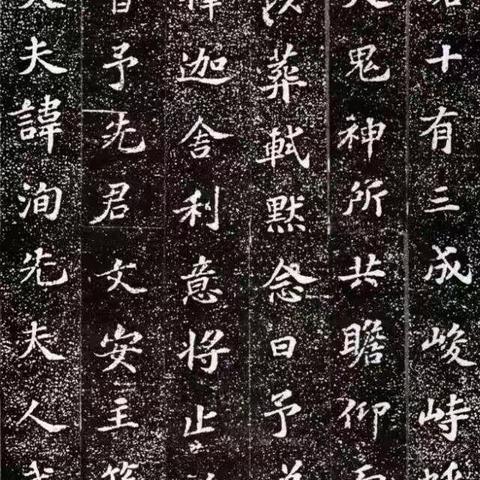 十有三成峻峙
鬼神所共瞻仰
葬軾默念曰予
迦舍利意將止
予先君文安主
夫諱洵先夫人